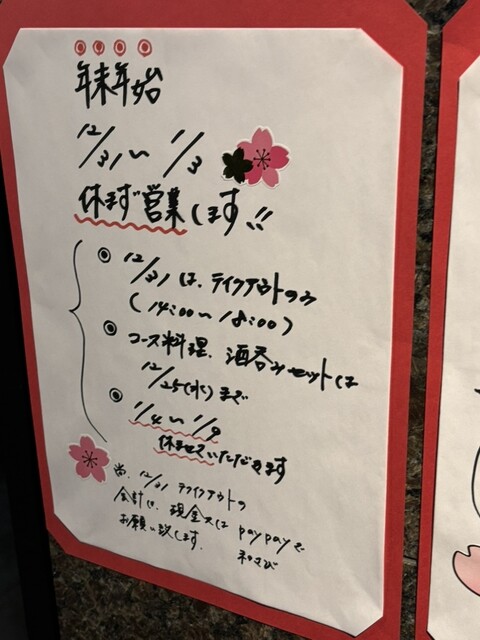 年末年始
12/31〜1/3
休まず営業します!!
12/31は、テイクアウトのみ
(14:00〜18:00)
コース料理、酒呑みセットは
12/25(水)まで
1/4〜1/9
休ませていただきます
尚、12/31 テイクアウトの
会計は、現金又はpaypayで
お願い致します。 和さび